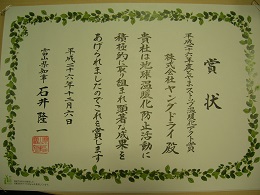 賞状
平成二十六年度とやまストップ温暖化アクト賞
株式会社ヤングドライ殿
貴社は地球温暖化防止活動に
積極的に取り組まれ顕著な成果を
あげられましたのでこれを賞します
平成二十六年十二月六日
富山県知事 石井隆一